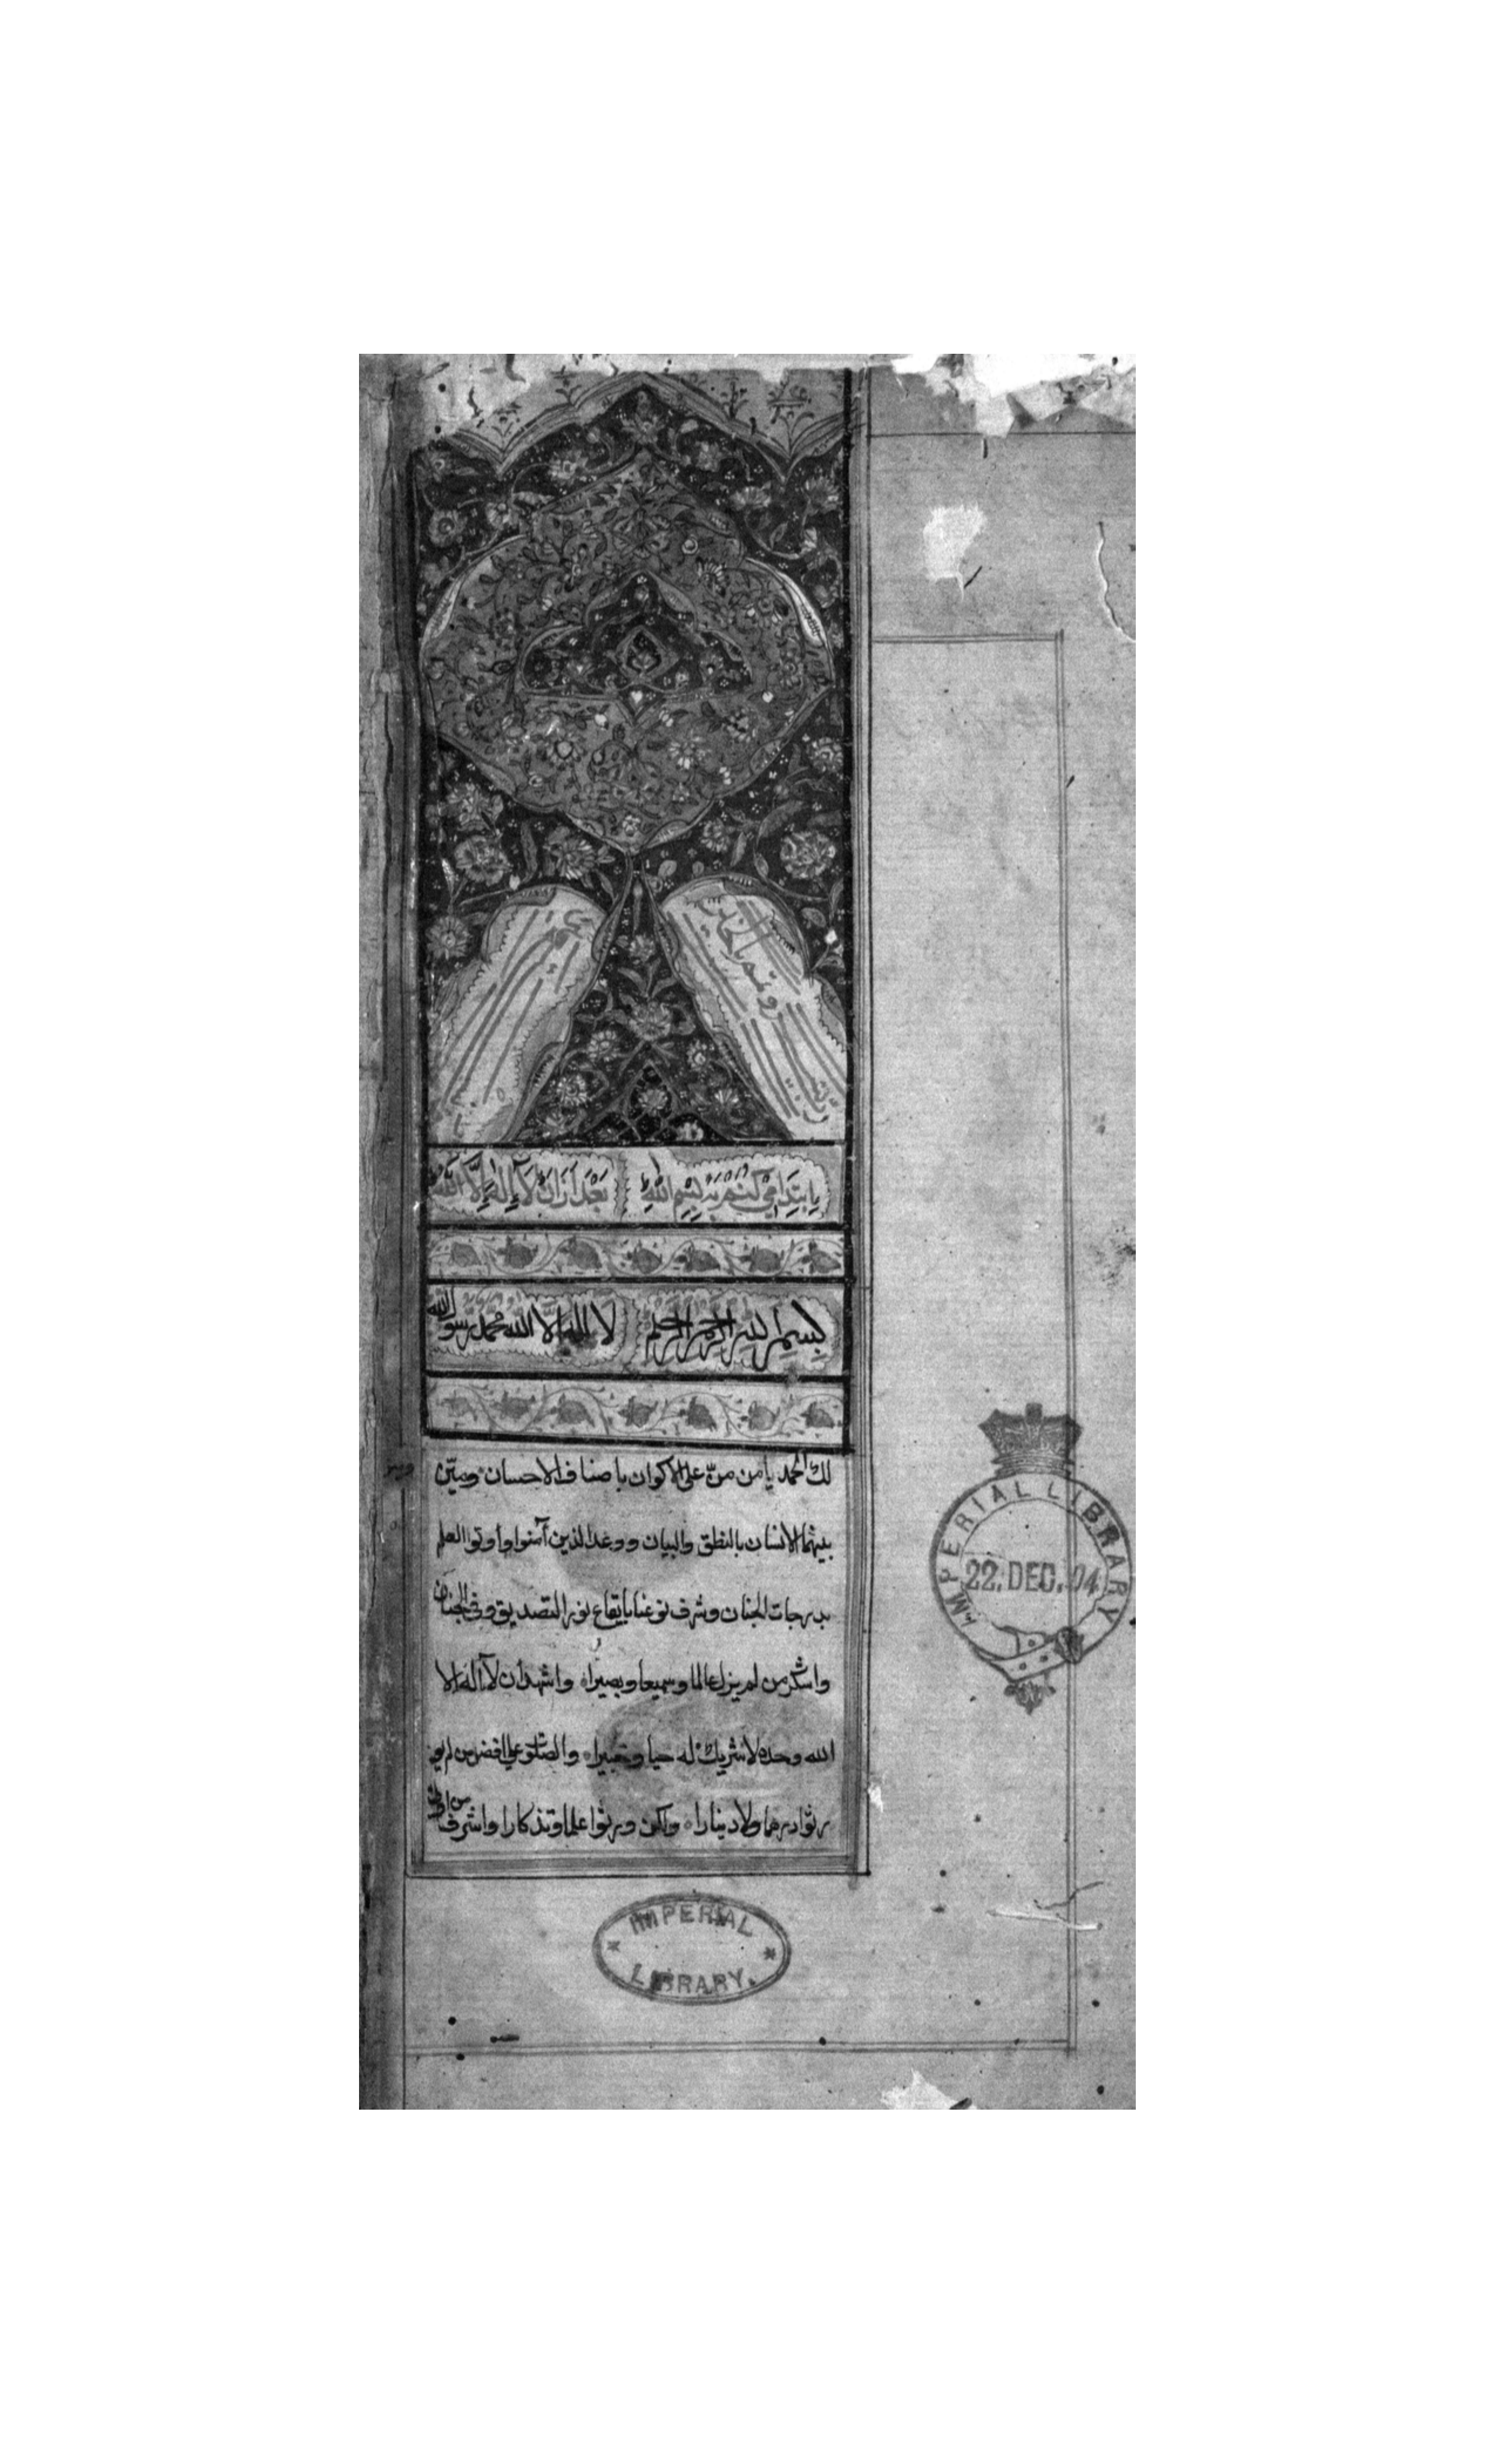 بابتدا می کنم به بسم الله بعد ازان لآ إله إلا الله
بسم الله الرحمن الرحيم لا اله الا الله محمد رسول الله
لك الحمد يا من منّ على الاكوان باصناف الاحسان وميّن
بينهما الانسان بالنطق والبيان ووعد الذين آمنوا وأوتوا العلم
بدرجات الجنان وشرف نوعنا بايقاع نور التصديق وفى الجنان
واشكر من لم يزل عالما وسميعا وبصيرا واشهد ان لآ اله الا
الله وحده لا شريك له حيا وخبيرا والصلوة على افضل من لم يو
رثوا درهما ولا دينارا ولكن ورثوا علما وتذكارا واشرف من
IMPERIAL LIBRARY
22.DEC.04
IMPERIAL
LIBRARY.